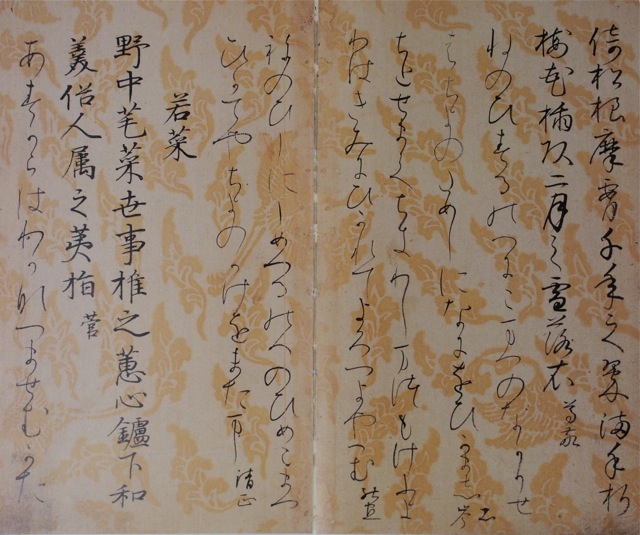 倚松根摩腰千年之翠満手折
梅花插頭二月之雪落衣 尊敬
ねのひするのへにこまつのなかりせ
はちよのためしになにをひかまし 忠岑
ちとせまてちきりしまつもけふよ
りはきみにひかれてよろつよやへむ 能宣
ねのひしにしめつるのへのひめこまつ
ひかてやちよのかけをまたまし 清正
若菜
野中芼菜世事推之蕙心鑪下和
羹俗人属之荑指 菅
あすからはわかなつませむかた